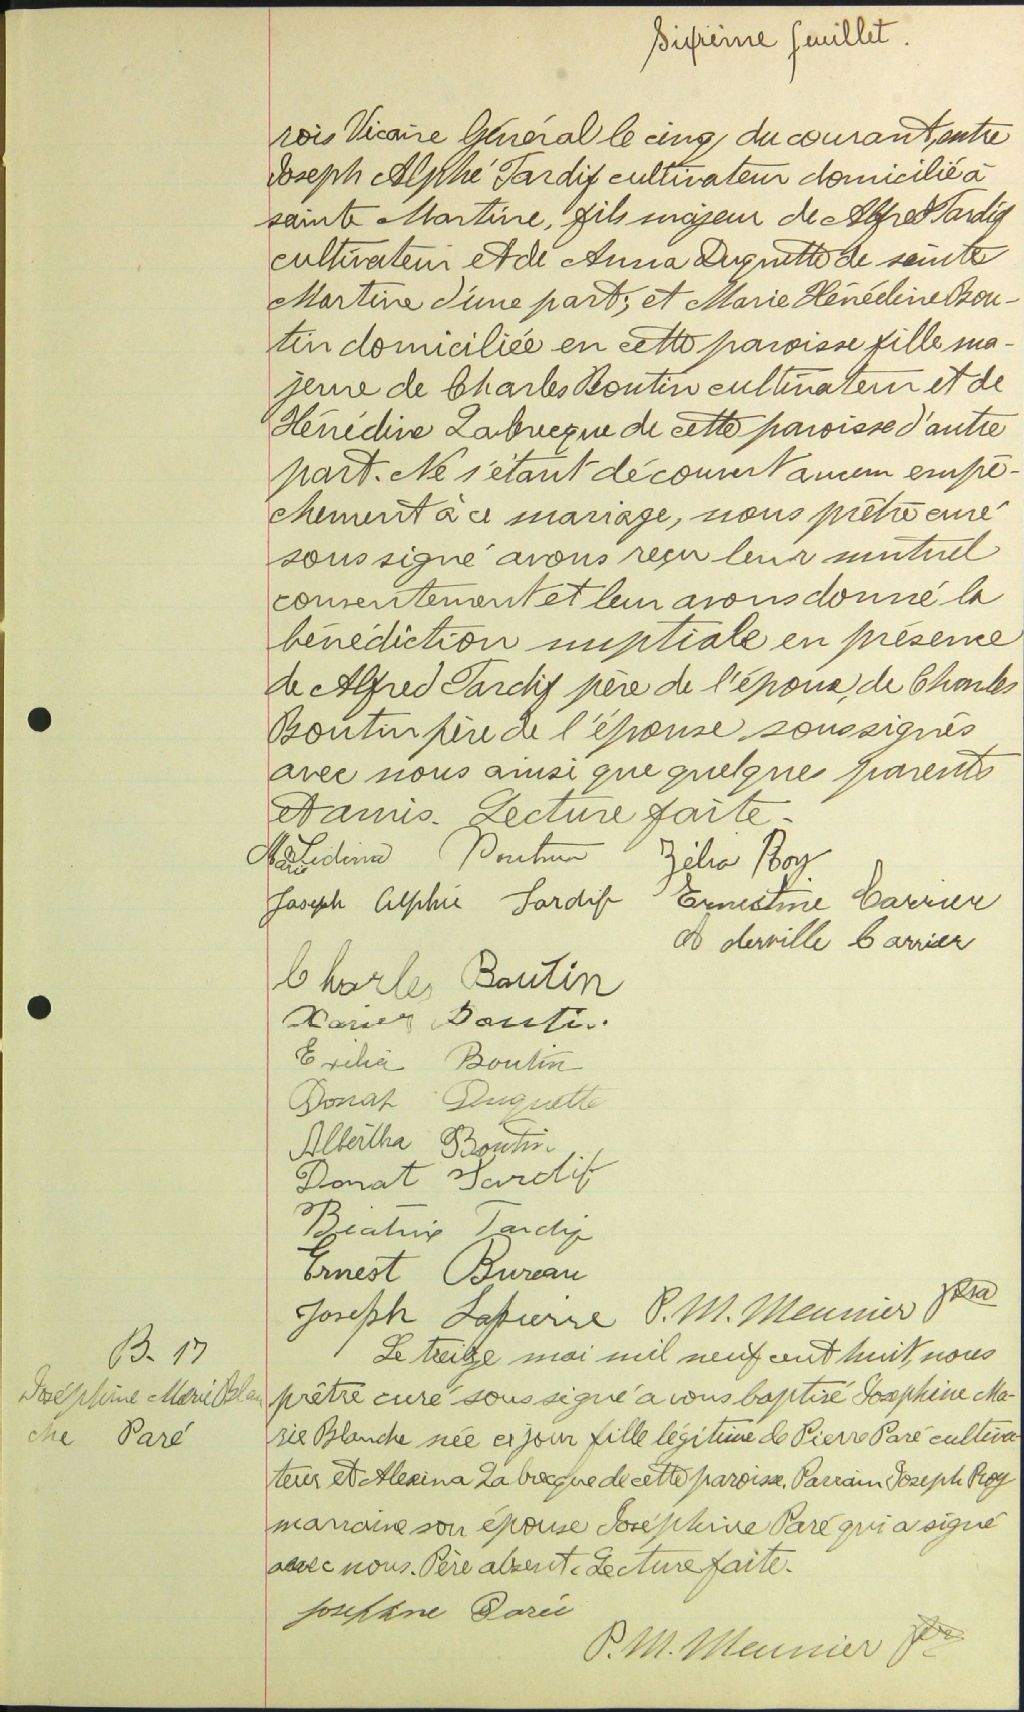 Sixième feuillet.
rois Vicaire Général le cinq du courant, entre
Joseph Alphé Tardif cultivateur domicilié à
sainte Martine, fils majeur de Alfred Tardif
cultivateur et de Anna Duquette de sainte
Martine d'une part; et Marie Hénédine Bou-
tin domiciliée en cette paroisse fille ma-
jeure de Charles Boutin cultivateur et de
Hénédine Labrecque de cette paroisse d'autre
part. Ne s'étant découvert aucun empê-
chement à ce mariage, nous prêtre curé
soussigné avons reçu leur mutuel
consentement et leur avons donné la
bénédiction nuptiale en présence
de Alfred Tardif père de l'époux, de Charles
Boutin père de l'épouse soussignés
avec nous ainsi que quelques parents
et amis. Lecture faite.
Marie Lidina Boutin Zélia Roy
Joseph Alphié Tardif Ernestine Carrier
Aderville Carrier
Charles Boutin
Xavier Boutin
Exilia Boutin
Donat Duquette
Albertha Boutin
Donat Tardif
Béatrix Tardif
Ernest Bureau
Joseph Lapierre P. M. Meunier ptre
B. 17
Joséphine Marie Blan
che Paré
Le treize mai mil neuf cent huit, nous
prêtre curé soussigné avons baptisé Josephine Ma-
rie Blanche née ce jour fille légitime de Pierre Paré cultiva-
teur et Alexina Labrecque de cette paroisse. Parrain Joseph Roy
marraine son épouse Joséphine Paré qui a signé
avec nous. Père absent. Lecture faite.
Josephine Parée
P. M. Meunier ptre